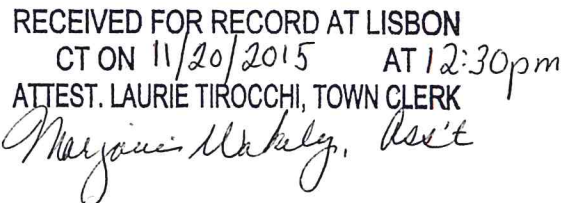 RECEIVED FOR RECORD AT LISBON
CT ON 11/20/2015 AT 12:30pm
ATTEST. LAURIE TIROCCHI, TOWN CLERK
Marjorie Wakely, Ass't